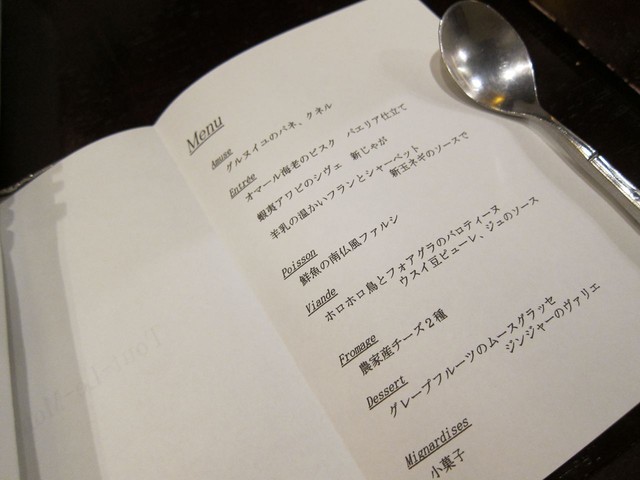 Menu
Amuse
グルヌイユのパネ、クネル
Entrée
オマール海老のビスク　パエリア仕立て
蝦夷アワビのシヴェ　新じゃが
羊乳の温かいフランとシャーベット
新玉ネギのソースで
Poisson
鮮魚の南仏風ファルシ
Viande
ホロホロ鳥とフォアグラのバロティーヌ
ウスイ豆ピューレ、ジュのソース
Fromage
農家産チーズ２種
Dessert
グレープフルーツのムースグラッセ
ジンジャーのヴァリエ
Mignardises
小菓子